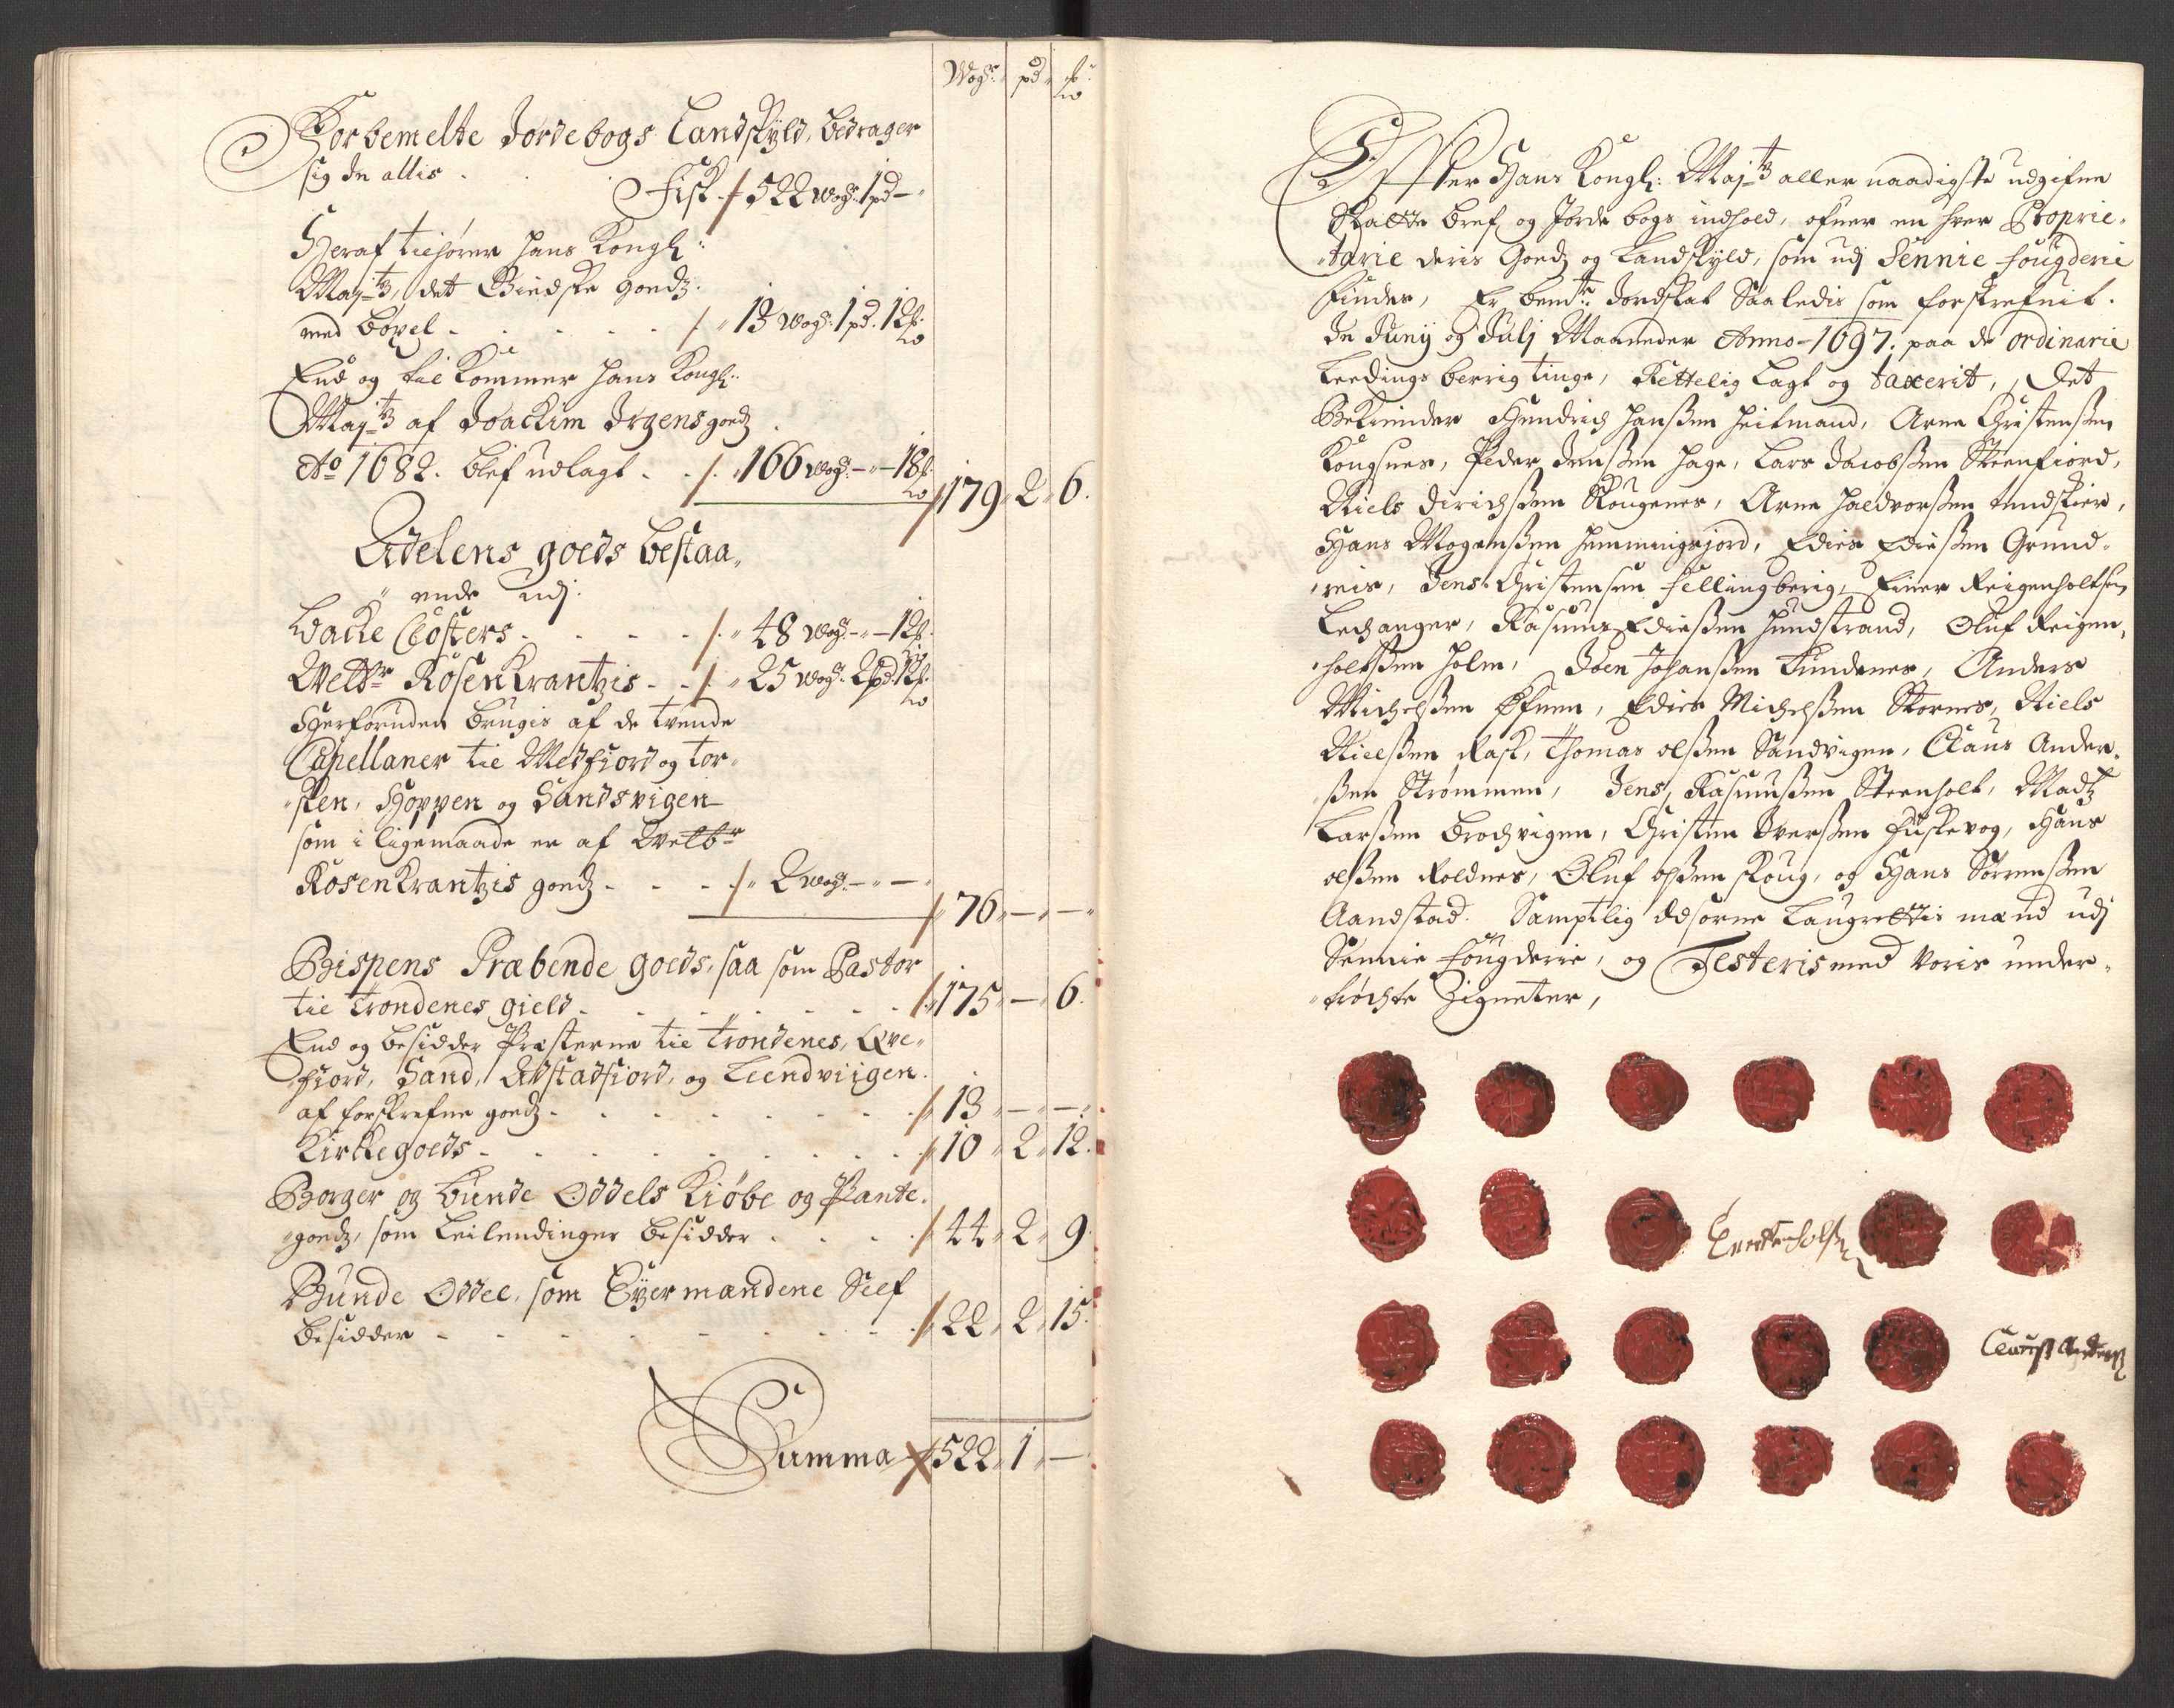 Wogr pd
Forbemelte Jordebogs Landskyld, bedrager
sig in allis.
Fisk 522 Wogr 1 pd —
Heraf tilhører hans Kongl:
Maytz, det Giedske goedz
med bøxel - 13 wogr: 1 pd: 12
End og tilkommer hans Kongl:
Maytz af Joackim Irgens goedz
Ao 1682. blef udlagt - 166 wogr — 18
179 2 6.
Adelens goeds bestaa„
„ende udj.
Backe Closters - 48 wogr — 12
Velbr Rosenkrantzis - 25 wogr. 2 pd 12
Herforuden brugis af de tvende
Capellaner til Medfiord og Tor„
„sken, Hoppen og Sandsvigen
som i ligemaade er af Velbr
Rosenkrantzis goedz - 2 wogr — —
76 — —
Bispens Præbende goeds, saa som Pastor
til Trondenes gield - 175 — 6.
End og besidder Præsterne til Trondenes, Qve„
„fiord, Sand, Astadfiord, og Leendviigen
af forskrefne goedz - 13 — —
Kirkegoeds - 10 2 12.
Borger og Bunde Oddels Kiøbe og Pante„
„goedz, som Leilendinger besidder - 44 2 9
Bunde Oddel, som Eyermændene Self
besidder - 22 2 15.
Summa 522 1 —
Efter Hans Kongl: Maytz aller naadigste udgifne
Skatte bref og Jorde bogs indhold, ofuer en hver Proprie„
„tarie deris Goedz og Landskyld, som udj Sennie fougderie
findes, Er bemte Jordskat Saaledis som forskrefuit.
In Junij og Julj Maaneder Anno 1697. paa de ordinarie
Leedings berrig tinge, Rettelig Lagt og taxerit, Det
Bekiender Hendrich Hanssen Heitmand, Arne Christenssen
Kongsnes, Peder Jenssen Hage, Lars Jacobssen Steenfiord,
Niels Dirichssen Skougenes, Arne Haldvorssen
Hans Mogenssen Hemmingsjord, Edies Ediessen Grund„
„reis, Jens Christensen Fellingberig, Einer Reigenholtsen
Lechanger, Rasmus Ediessen Hundstrand, Oluf Reigen„
„holtssen Holm, Joen Johanssen Kundenes, Anders
Michelssen Efuen, Edies Michelssen Stornes, Niels
Nielssen Rask, Thomas olssen Sandvigen, Claus Ander„
„ssen Strømmen, Jens Rasmussen Steenholt, Madtz
Larssen Brochvigen, Christen Iverssen Fuskevog, Hans
olssen Roldnes, Oluf olssen Skoug, og Hans Sørrenssen
Aanstad. Samptlig Edsorne Laugrettis mænd udj
Sennie fougderie, og Testeris med Voris under„
„trøchte Zigneter,
Clauss Anderss